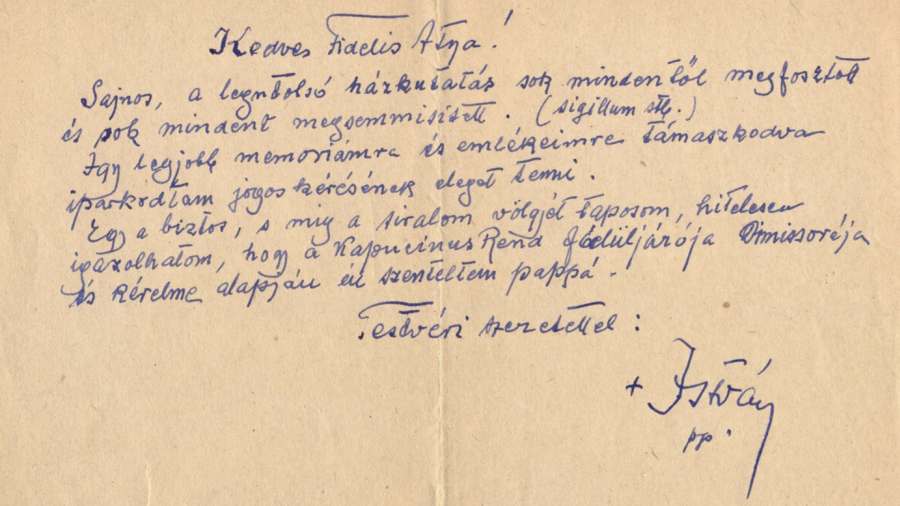 Kedves Fidelis Atya!
Sajnos, a legutolsó házkutatás sok mindentől megfosztott
és sok mindent megsemmisített. (sigillum stb.)
Így legjobb memoriámra és emlékeimre támaszkodva
iparkodtam jogos kérésének eleget tenni.
Egy a biztos, s míg a siralom völgyét taposom, hitelesen
igazolhatom, hogy a Kapucinus Rend Főelüljárója Dimissoréja
és kérelme alapján én szenteltem pappá.
Testvéri szeretettel:
+ István
pp.